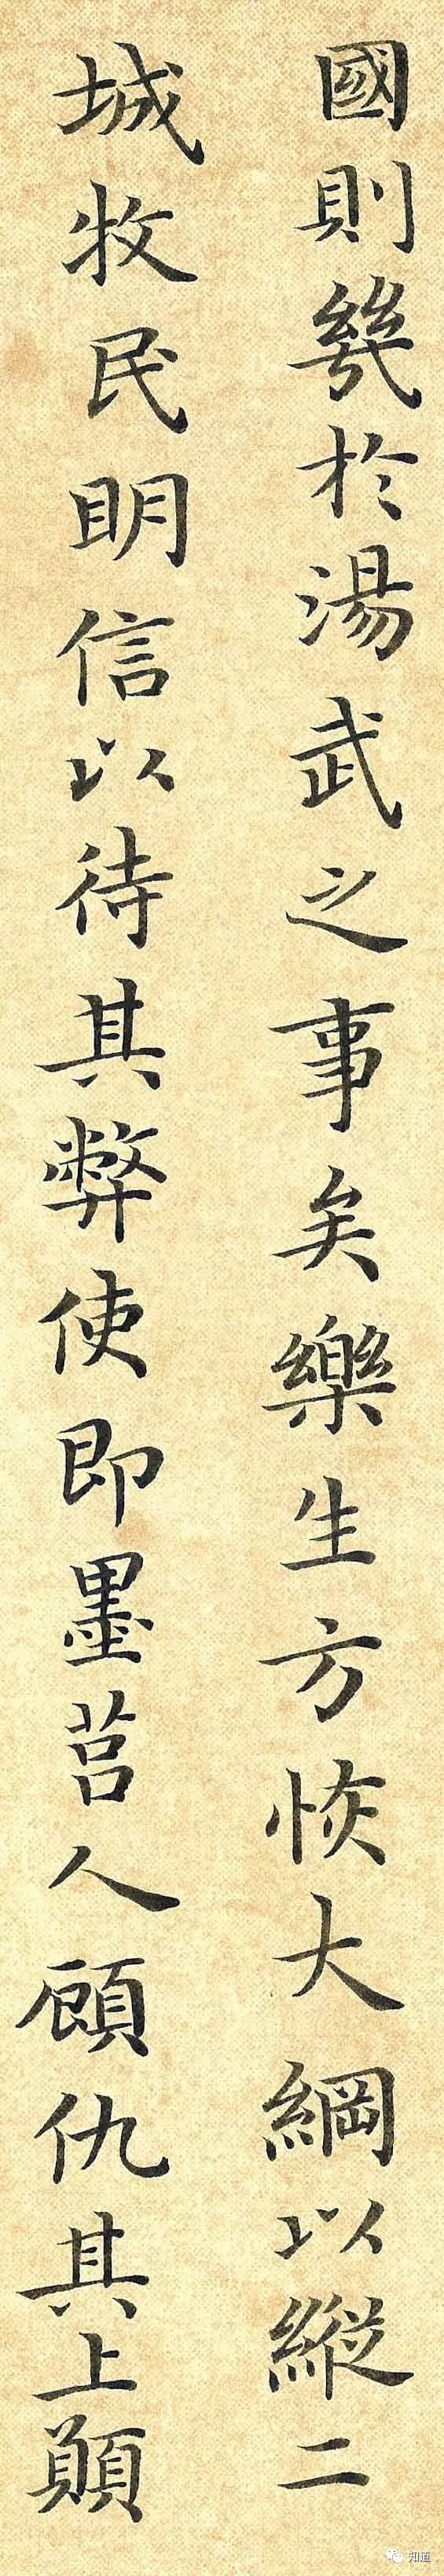 國則幾於湯武之事矣樂生方恢大綱以縱二
城牧民明信以待其弊使即墨莒人顧仇其上願
知道